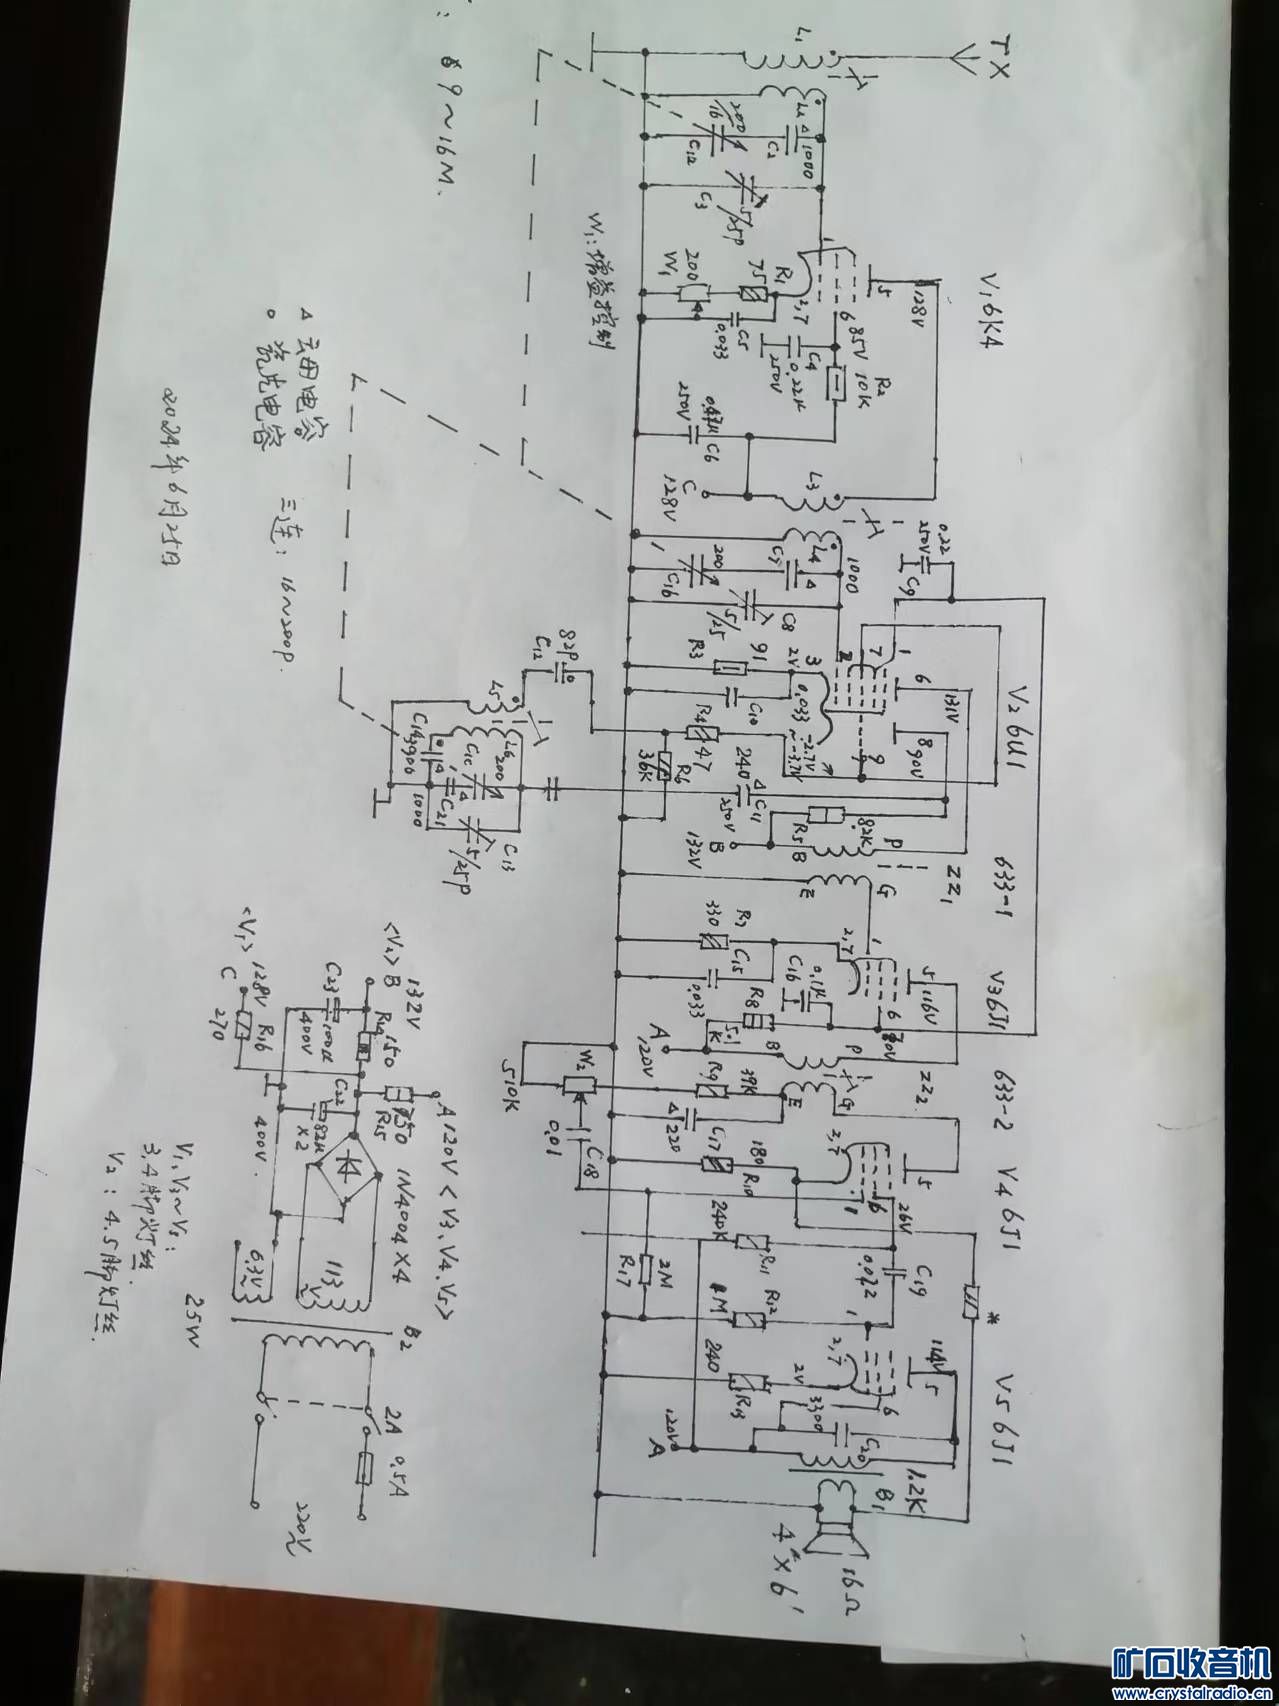 TX
V1 6K4
V2 6U1
633-1
V3 6J1
633-2
V4 6J1
V5 6J1
L1
1000
C2
200
C12
C3
5/25P
1
5
128V
6
85V
R2
10K
2,7
R1
75
W1
200
C5
0.033
C4
0.22μ
250V
C6
250V
C
128V
L3
L4
1000
C7
200
C16
C8
5/25
0.22
250V
C9
1
7
2
3
2V
91
R3
0.033
C10
6
131V
8
90V
9
-2.7V
~-3.7V
R4
47
R6
36K
240
C11
250V
82K
R5
B
132V
P
B
ZZ1
G
E
82P
C12
L5
L6
200
C1C
C14
3900
C21
1000
C13
5/25P
1
2,7
R7
330
C15
0.033
5
116V
6
0.1μ
C16
R8
5.1K
A
120V
P
B
ZZ2
G
E
R9
39K
C17
220
W2
510K
0.01
C18
2,7
1
5
6
26V
180
R10
240K
R11
C19
0.022
2M
R17
1M
R12
240
R13
2V
2,7
1
5
114V
6
3300
C20
120V
A
1.2K
B1
16Ω
4"×6'
*
W1:增益控制
:69~16M.
△ 云母电容
○ 瓷片电容
三连:16~200P.
2024年6月25日
<V2> B 132V
<V1> C 128V
R16
270
C23
100μ
400V
R14
150
C22
82μ
×2
400V
R15
A 120V <V3、V4、V5>
1N4004×4
113V
6.3V
B2
25W
2A
0.5A
220V
V1、V3~V5:
3.4脚灯丝.
V2:4.5脚灯丝.
矿石收音机
www.crystalradio.cn